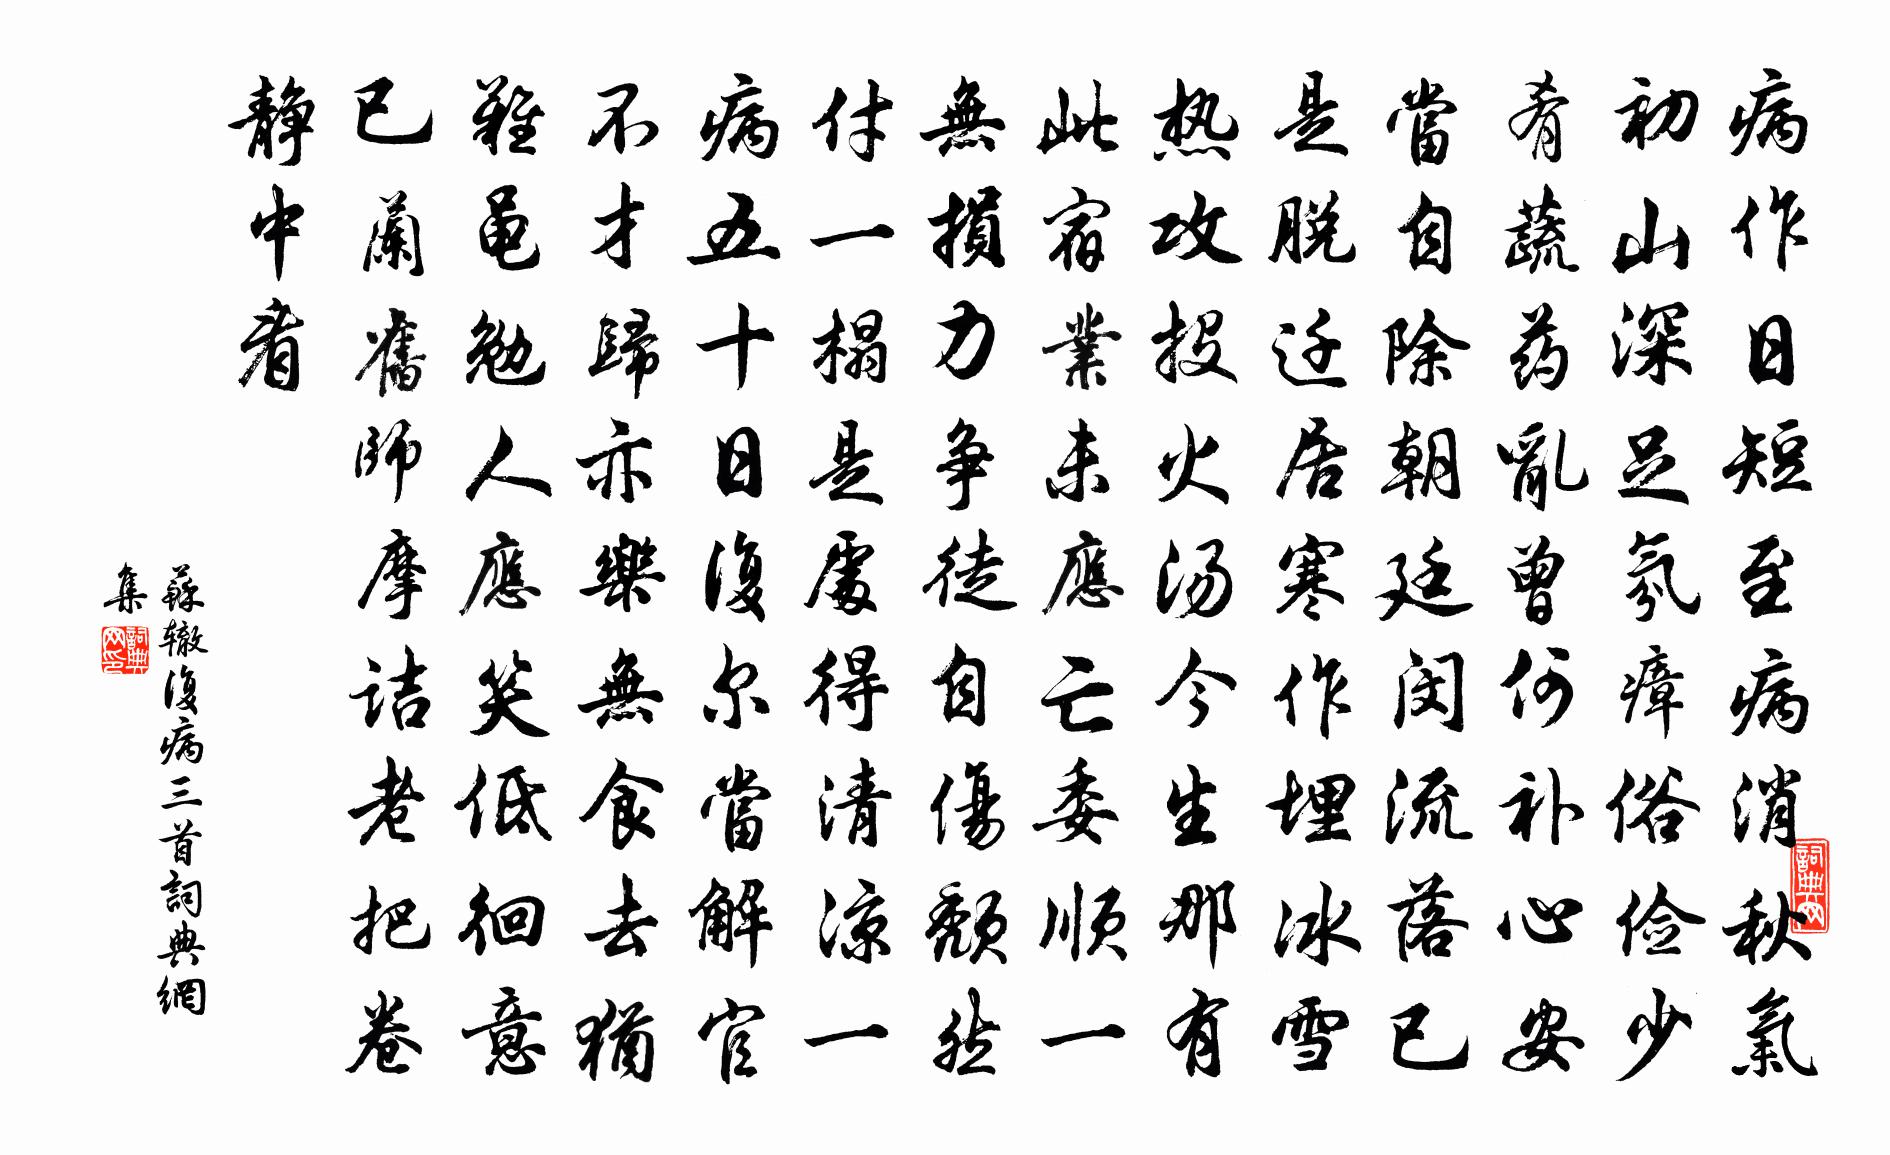 病作日短至病消秋氣
初山深足氛瘴俗俭少
肴蔬药亂曾何补心安
當自除朝廷闵流落已
是脱迁居寒作埋冰雪
热攻投火汤今生那有
此宿業未應亡委順一
無損力争徒自傷颓然
付一榻是處得清凉一
病五十日復尔當解官
不才歸亦樂無食去猶
難黽勉人應笑低徊意
已蘭舊師摩诘老把卷
静中看
蘇辙復病三首詞典網
集
詞典网印
詞典网